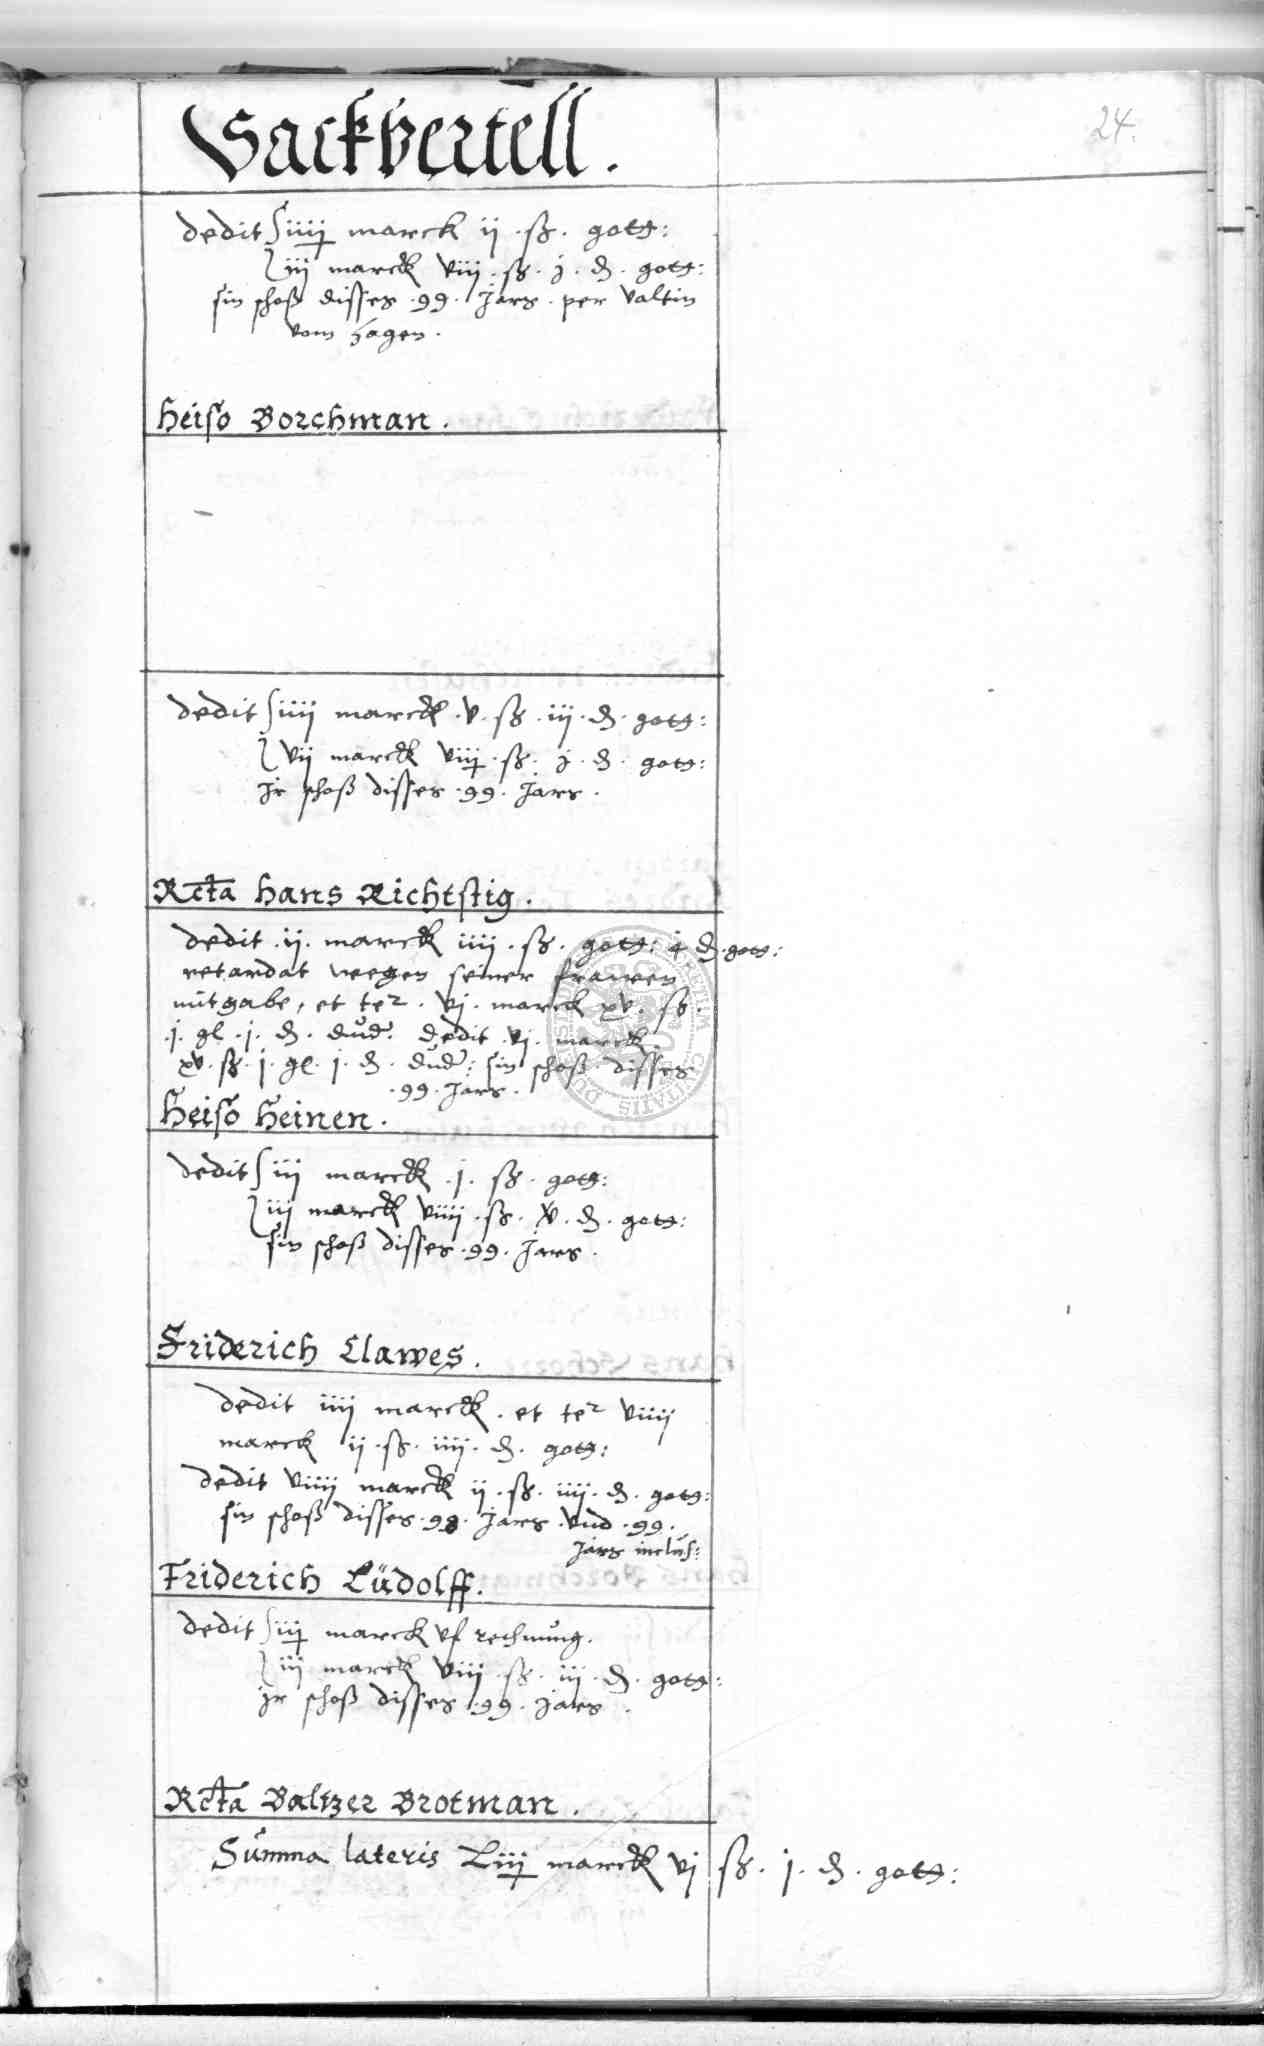 Sackvertell.
24.
dedit iiij marck ij. ß. gotg:
iij marck viij. ß. j. ₰. gotg:
sin schoß disses .99. Jars. per Valtin
vom Hagen.
Heiso Borchman.
dedit iiij marck .v. ß. iij. ₰. gotg:
vij marck viij. ß. j. ₰. gotg:
Jr schoß disses .99. Jars.
Rcta Hans Richtstig.
dedit .ij. marck iiij. ß. gotg: 4 ₰. gotg:
retardat wegen seiner frawen
mitgabe, et ter. vj. marck xv. ß.
.j. gl. j. ₰. dud. Dedit vj. marck.
xv. ß. j. gl. j. ₰. dud: sin schoß disses
.99. Jars.
Heiso Heinen.
dedit iij marck .j. ß. gotg:
iij marck viiij. ß. v. ₰. gotg:
sin schoß disses .99. Jars.
Friderich Clawes.
dedit iiij marck. et ter viiij
marck ij. ß. iiij. ₰. gotg:
dedit viiij marck ij. ß. iiij. ₰. gotg:
sin schoß disses .98. Jars vnd .99.
Jars inclus:
Friderich Lüdolff.
dedit iij marck vf rechnung.
iij marck viij. ß. iij. ₰. gotg:
jr schoß disses .99. Jars.
Rcta Baltzer Brotman.
Summa lateris Liij marck vj ß. j. ₰. gotg: